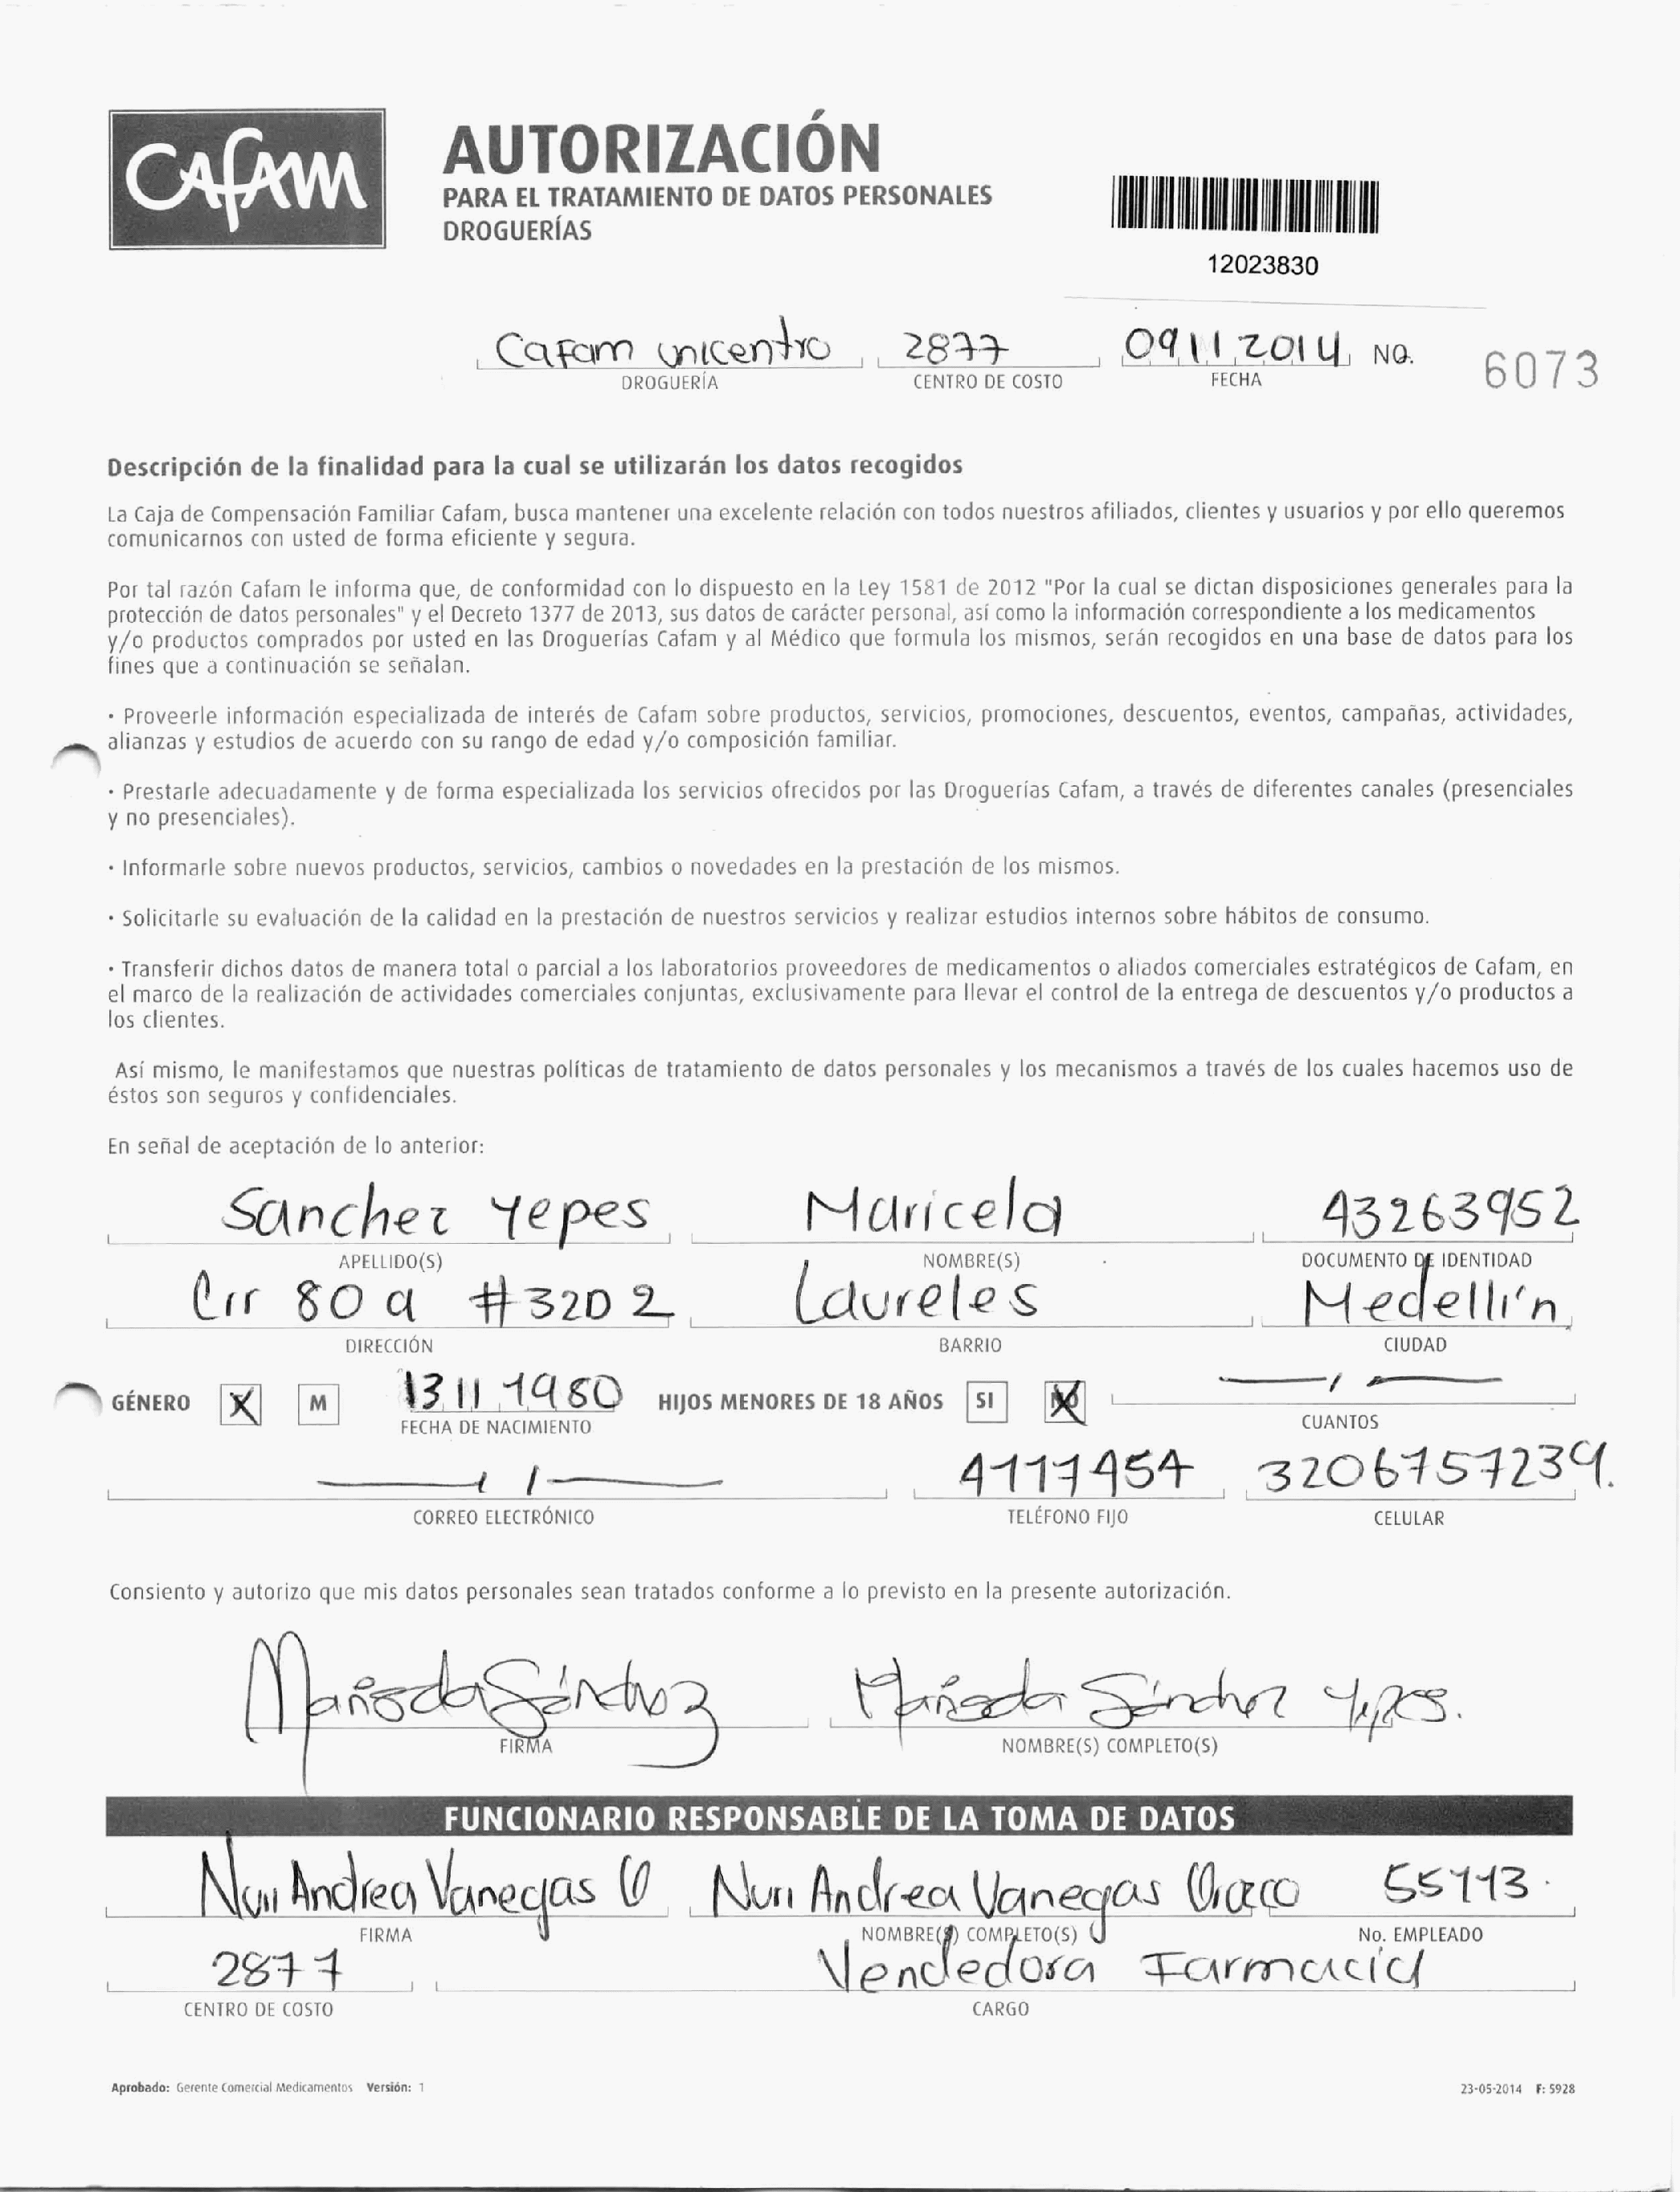 CAFAM
AUTORIZACIÓN
PARA EL TRATAMIENTO DE DATOS PERSONALES
DROGUERÍAS
12023830
Cafam unicentro 2877 09 11 2014 NO. 6073
DROGUERÍA CENTRO DE COSTO FECHA
Descripción de la finalidad para la cual se utilizarán los datos recogidos
La Caja de Compensación Familiar Cafam, busca mantener una excelente relación con todos nuestros afiliados, clientes y usuarios y por ello queremos
comunicarnos con usted de forma eficiente y segura.
Por tal razón Cafam le informa que, de conformidad con lo dispuesto en la Ley 1581 de 2012 "Por la cual se dictan disposiciones generales para la
protección de datos personales" y el Decreto 1377 de 2013, sus datos de carácter personal, así como la información correspondiente a los medicamentos
y/o productos comprados por usted en las Droguerías Cafam y al Médico que formula los mismos, serán recogidos en una base de datos para los
fines que a continuación se señalan.
· Proveerle información especializada de interés de Cafam sobre productos, servicios, promociones, descuentos, eventos, campañas, actividades,
alianzas y estudios de acuerdo con su rango de edad y/o composición familiar.
· Prestarle adecuadamente y de forma especializada los servicios ofrecidos por las Droguerías Cafam, a través de diferentes canales (presenciales
y no presenciales).
· Informarle sobre nuevos productos, servicios, cambios o novedades en la prestación de los mismos.
· Solicitarle su evaluación de la calidad en la prestación de nuestros servicios y realizar estudios internos sobre hábitos de consumo.
· Transferir dichos datos de manera total o parcial a los laboratorios proveedores de medicamentos o aliados comerciales estratégicos de Cafam, en
el marco de la realización de actividades comerciales conjuntas, exclusivamente para llevar el control de la entrega de descuentos y/o productos a
los clientes.
Así mismo, le manifestamos que nuestras políticas de tratamiento de datos personales y los mecanismos a través de los cuales hacemos uso de
éstos son seguros y confidenciales.
En señal de aceptación de lo anterior:
Sanchez Yepes Maricela 43263952
APELLIDO(S) NOMBRE(S) DOCUMENTO DE IDENTIDAD
Cir 80 a #32D 2 Laureles Medellín
DIRECCIÓN BARRIO CIUDAD
GÉNERO X M 13 11 1980 HIJOS MENORES DE 18 AÑOS SI X
FECHA DE NACIMIENTO CUANTOS
4117454 3206757239.
CORREO ELECTRÓNICO TELÉFONO FIJO CELULAR
Consiento y autorizo que mis datos personales sean tratados conforme a lo previsto en la presente autorización.
Maricela Sánchez Maricela Sánchez Yepes.
FIRMA NOMBRE(S) COMPLETO(S)
FUNCIONARIO RESPONSABLE DE LA TOMA DE DATOS
Nuri Andrea Vanegas O Nuri Andrea Vanegas 55113.
FIRMA NOMBRE(S) COMPLETO(S) No. EMPLEADO
2877 Vendedora Farmacia
CENTRO DE COSTO CARGO
Aprobado: Gerente Comercial Medicamentos Versión: 1 23-05-2014 F: 5928